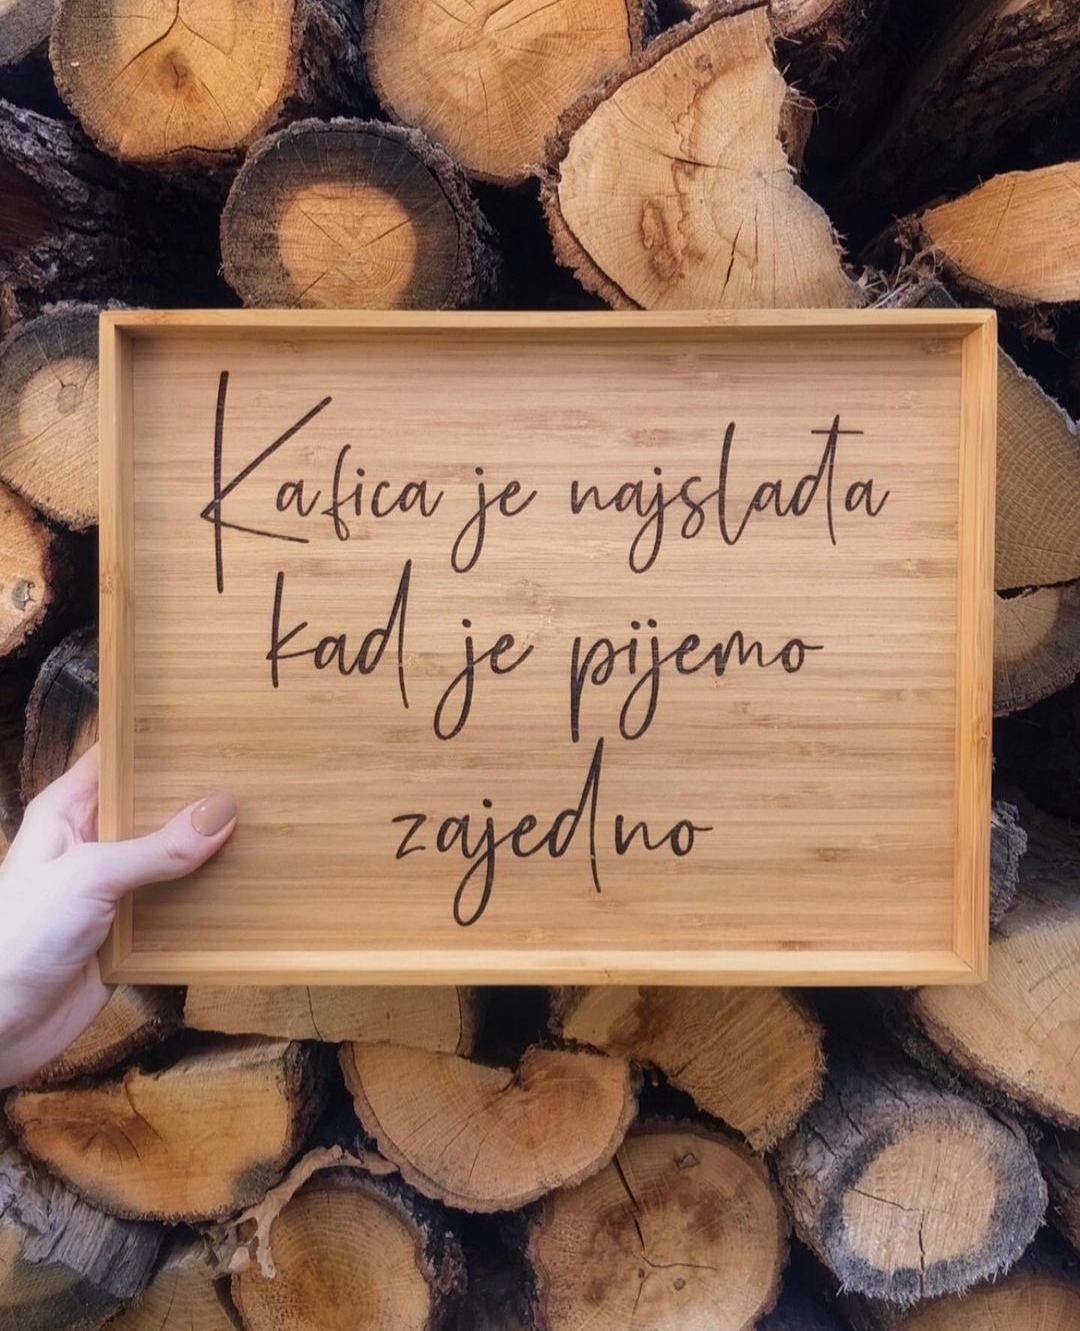 Kafica je najslađa
kad je pijemo
zajedno